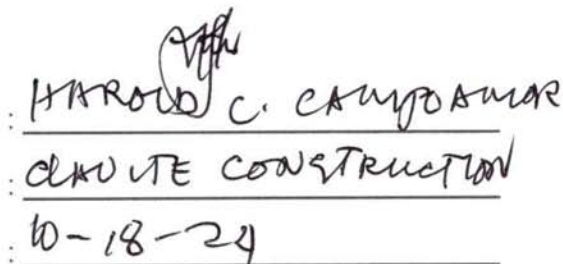 : HAROLD C. CAMPOAMOR
: CONSTRUCTION
: 10-18-24